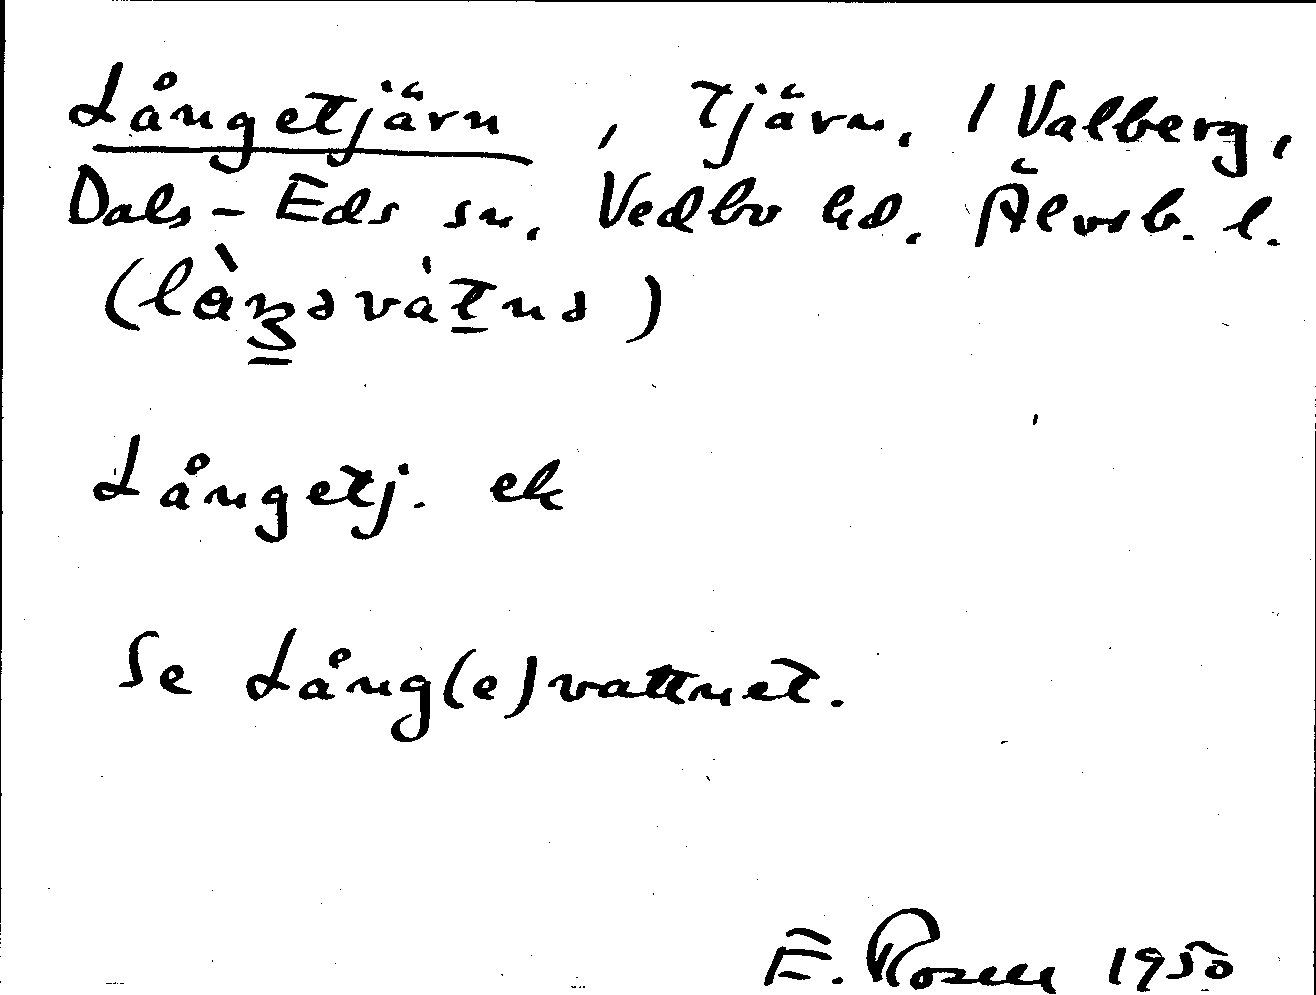 Långetjärn, tjärn, 1 Valberg,
Dals-Eds sn, Vedbo hd, Älvsb. l.
Långetj. ek
Se Lång(e)vattnet.
E. Rosell 1950